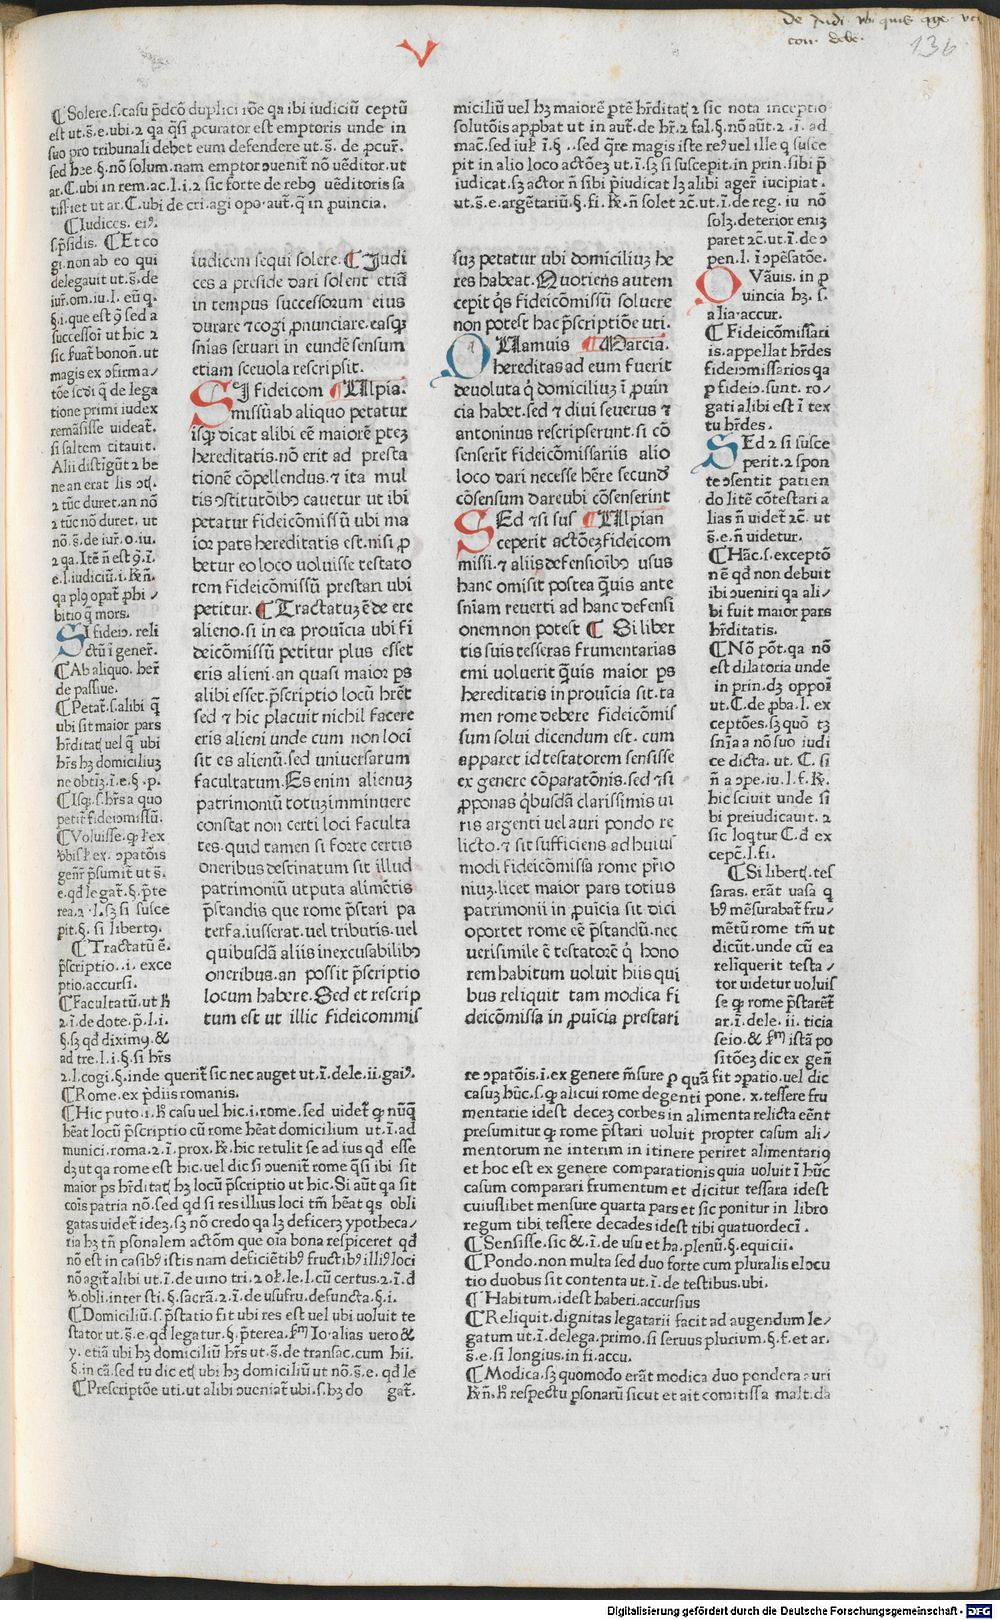 De Judi. vbi quis age. vel
con. debe.
136
V
¶ Solere.s.casu p̄dc̄o duplici rōe qa ibi iudiciū ceptū
est ut.s̄.e.ubi.2 qa q̄si ꝓcurator est emptoris unde in
suo pro tribunali debet eum defendere ut.s̄. de ꝓcur̄.
sed hee.§.nō solum.nam emptor ɔuenit̄ nō uēditor.ut
ar.C.ubi in rem.ac.l.i.2 sic forte de rebꝰ uēditoris sa
tisfiet ut ar.C.ubi de cri.agi opo.aut̄.q̄ in ꝓuincia.
¶ Iudices. eiꝰ.
s.p̄sidis. ¶ Et co
gi.non ab eo qui
delegauit ut.s̄.de
iur̄.om.iu.l. eū q̄.
§.i.que est ꝯ sed a
successor̄ ut hic 2
sic s̄uat̄ bonoñ.ut
magis ex ɔfirma/
tōe scd̄i q̄ de lega
tione primi iudex
remāsisse uideat̄.
si saltem citauit.
Alii distīgūt 2 be
ne an erat lis ɔtꝭ.
2 tūc duret.an nō
2 tūc nō duret. ut
nō.s̄.de iur̄.o.iu.
2 qa.Itē ñ est ꝯ.ī.
e.l.iudiciū.i.R̄.ñ.
qa plꝰ opat̄.ꝓhi/
bitio q̄ mors.
SI fideiɔ. reli
ctū ī gener̄.
¶ Ab aliquo. her̄
de passiue.
¶ Petat̄.s.alibi q̄
ubi sit maior pars
hr̄ditatꝭ uel q̄ ubi
hr̄s hꝫ domiciliuꝫ
ne obtiꝫ.ī.e.§.p.
¶ Isqꝫ.s.hr̄s a quo
petit̄ fideiɔmissū.
¶ Voluisse.ꝙ l̄ ex
v̄bis l̄ ex. ɔpatōis
geñr̄ p̄sumit̄ ut s̄.
e.qd̄ legat̄.§.p̄te
rea.2 .l.sꝫ si susce
pit.§. si libertꝰ.
¶ Tractatū ē.
p̄scriptio..i. exce
ptio.accursi.
¶ Facultatū.ut R̄
2.ī.de dote.p̄.l.i.
§.sꝫ qd̄ diximꝰ.&
ad tre.l.i.§.si hr̄s
2.l.cogi.§.inde querit̄ sic nec auget ut.ī.dele.ii.gaiꝰ.
¶ Rome.ex p̄diis romanis.
¶ Hic puto.i. h̄ casu uel hic.i.rome.sed uidet̄ ꝙ nūq̄
hēat locū p̄scriptio cū rome hēat domicilium ut.ī.ad
munici.roma.2.ī.prox.R̄.hic retulit se ad ius qd̄ esse
dꝫ ut qa rome est hic.uel dic si ɔuenit̄ rome q̄si ibi sit
maior ps hr̄ditatꝭ hꝫ locū p̄scriptio ut hic.Si aūt qa sit
cōis patria nō.sed qd̄ si res illius loci tm̄ hēat qs obli
gatas uidet̄ ideꝫ.sꝫ nō credo qa lꝫ deficerꝫ ypotheca/
ria hꝫ tñ psonalem actōm que oīa bona respiceret qd̄
nō est in casibꝰ istis nam deficiētibꝰ fructibꝰ illiꝰ loci
nō agit̄ alibi ut.ī.de uino tri.2 ol̄.le.l.cū certus.2.ī.d̄
v̄.obli.inter sti.§.sacrā.2.ī.de usufru.defuncta.§.i.
¶ Domiciliū.s.p̄statio fit ubi res est uel ubi uoluit te
stator ut.s̄.e.qd̄ legatur.§.p̄terea.s̄ꝫ Io.alias uero &
y. etiā ubi hꝫ domiciliū hr̄s ut.s̄.de transac.cum hii.
§.in cā.sed tu dic etꝭ ubi hꝫ domiciliū ut nō.s̄.e. qd̄ le
¶ Prescriptōe uti.ut alibi ɔueniat̄ ubi.s.hꝫ do gat̄.
iudicem sequi solere. ¶ Judi
ces a preside dari solent etiā
in tempus successorum eius
durare ⁊ cogi ꝓnunciare.easqꝫ
sñias seruari in eundē sensum
etiam sceuola rescripsit.
SI fideicom ¶ Ulpia.
missū ab aliquo petatur
isqꝫ dicat alibi eē maiorē pteꝫ
hereditatis.nō erit ad presta
tionē cōpellendus.⁊ ita mul
tis ɔstitutōibꝰ cauetur ut ibi
petatur fideicōmissū ubi ma
ior pars hereditatis est.nisi ꝓ
betur eo loco voluisse testato
rem fideicōmissū prestari ubi
petitur. ¶ Tractatuꝫ ē de ere
alieno.si in ea prouīcia ubi fi
deicōmissū petitur plus esset
eris alieni.an quasi maior ps
alibi esset.p̄scriptio locū hr̄et
sed ⁊ hic placuit nichil facere
eris alieni unde cum non loci
sit es alienū.sed uniuersarum
facultatum.Es enim alienuꝫ
patrimoniū totuꝫ imminuere
constat non certi loci faculta
tes.quid tamen si forte certis
oneribus destinatum sit illud
patrimoniū utputa alimētis
p̄standis que rome p̄stari pa
terfa.iusserat.uel tributis.uel
quibusdā aliis inexcusabilibꝰ
oneribus.an possit p̄scriptio
locum habere.Sed et rescrip
tum est ut illic fideicommis
miciliū uel hꝫ maiorē ptē hr̄ditatꝭ 2 sic nota inceptio
solutōis appbat ut in aut̄.de hr̄.2 fal.§.nō aūt.2 .i. ad
mac̄.sed iul̄ ī.§ ..sed q̄re magis iste reꝰ uel ille q̄ susce
pit in alio loco actōeꝫ ut.ī.sꝫ si suscepit.in prin.sibi p̄
iudicat.sꝫ actor ñ sibi p̄iudicat lꝫ alibi ager̄ iucipiat.
ut.s̄.e.argētariū.§.fi.R̄.ñ solet 2c̄.ut.ī.de reg. iu nō
solꝫ.deterior eniꝫ
paret 2c̄.ut.ī.de ɔ
pen.l. ī ɔpēsatōe.
QVāuis. in ꝓ
uincia hꝫ. s.
alia.accur.
¶ Fideicōmissari
is.appellat hr̄des
fideiɔmissarios qa
p fideiɔ.sunt. ro/
gati alibi est ī tex
tu hr̄des.
SEd 2 si susce
perit.2 spon
te ɔsentit patien
do litē cōtestari a
lias ñ uidet̄ 2c̄. ut
s̄.e.ñ uidetur.
¶ Hāc.s.exceptō
nē qd̄ non debuit
ibi ɔueniri qa ali/
bi fuit maior pars
hr̄ditatis.
¶ Nō pōt.qa nō
est dilatoria unde
in prin.dꝫ oppoī
ut.C.de ꝓba.l. ex
ceptōes.sꝫ quō tꝫ
sñia a nō suo iudi
ce dicta. ut. C. si
ñ a ɔpe.iu.l.f.R̄.
hic sciuit unde si
bi preiudicauit. 2
sic loqtur C.d̄ ex
cepc̄.l.fi.
¶ Si libertꝭ.tes
saras. erāt uasa q̄
bꝰ mēsurabat̄ fru/
mētū rome tm̄ ut
dicūt.unde cū ea
reliquerit testa/
tor uidetur uoluis
se ꝙ rome p̄staret̄
ar.ī.dele. ii. ticia
seio.& s̄m̄ istā po
sitōeꝫ dic ex geñ
suꝫ petatur ubi domiciliuꝫ he
res habeat. Quotiens autem
cepit q̄s fideicōmissū soluere
non potest hac p̄scriptiōe uti.
QUamuis ¶ Marcia.
hereditas ad eum fuerit
deuoluta q̄ domiciliuꝫ ī ꝓuin
cia habet.sed ⁊ diui seuerus ⁊
antoninus rescripserunt.si cō
senserit fideicōmissariis alio
loco dari necesse hēre secundꝫ
cōsensum dare ubi cōsenserint
SEd ⁊ si sus ¶ Ulpian
ceperit actōeꝫ fideicom
missi.⁊ aliis defensiōibꝰ usus
hanc omisit postea q̄uis ante
sñiam reuerti ad hanc defensi
onem non potest ¶ Si liber
tis suis tesseras frumentarias
emi voluerit q̄uis maior ps
hereditatis in prouīcia sit.ta
men rome debere fideicōmis
sum solui dicendum est. cum
apparet id testatorem sensisse
ex genere cōparatōnis.sed ⁊ si
ꝓponas q̄busdā clarissimis ui
ris argenti uel auri pondo re
licto.⁊ sit sufficiens ad huius
modi fideicōmissa rome pr̄io
niuꝫ.licet maior pars totius
patrimonii in ꝓuicia sit dici
oportet rome eē p̄standū.nec
uerisimile ē testatorē q̄ hono
rem habitum uoluit hiis qui
bus reliquit tam modica fi
deicōmissa in ꝓuīcia prestari
re ɔpatōis.i.ex genere m̄sure ꝓ quā fit ɔpatio.uel dic
casuꝫ hūc.s.ꝙ alicui rome degenti pone. x.tessere fru
mentarie idest deceꝫ corbes in alimenta relicta eēnt
presumitur ꝙ rome p̄stari uoluit propter casum ali/
mentorum ne interim in itinere periret alimentariꝰ
et hoc est ex genere comparationis quia uoluit ī hūc
casum comparari frumentum et dicitur tessara idest
cuiuslibet mensure quarta pars et sic ponitur in libro
regum tibi tessere decades idest tibi quatuordecī.
¶ Sensisse.sic &.ī.de usu et ha.plenū.§.equicii.
¶ Pondo.non multa sed duo forte cum pluralis elocu
tio duobus sit contenta ut.ī.de testibus.ubi.
¶ Habitum.idest haberi.accursius
¶ Reliquit.dignitas legatarii facit ad augendum le/
gatum ut.ī.delega.primo.si seruus plurium.§.f.et ar.
s̄.e.si longius.in fi.accu.
¶ Modica.sꝫ quomodo erāt modica duo pondera auri
R̄.ñ.h̄ respectu psonarū sicut et ait comitissa malt.da
Digitalisierung gefördert durch die Deutsche Forschungsgemeinschaft - DFG